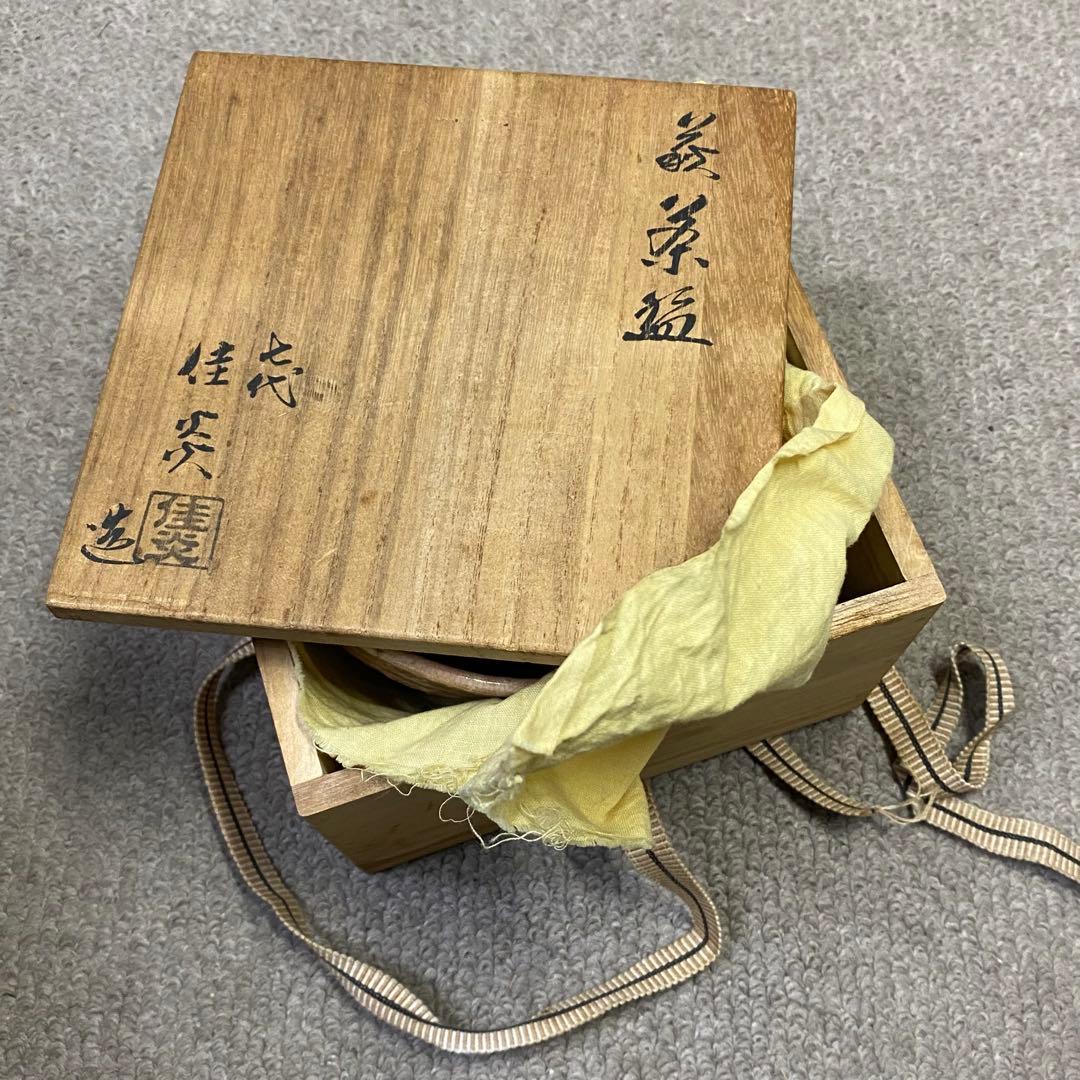 萩茶盌
七代
佳炎
造
佳炎